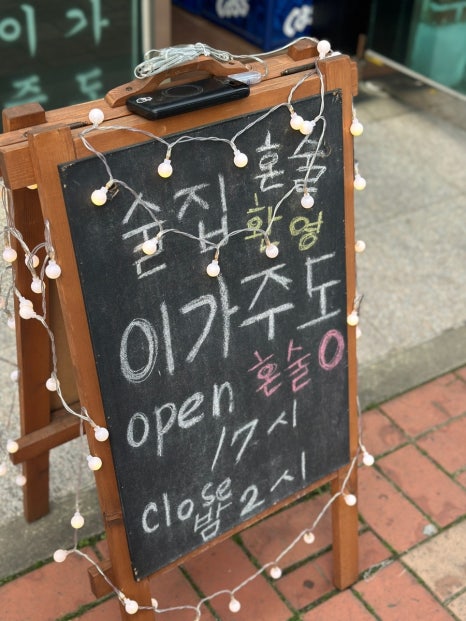 이가
주도
Cass
혼술
술집 환영
이가주도
open 혼술O
17시
close
밤 2시